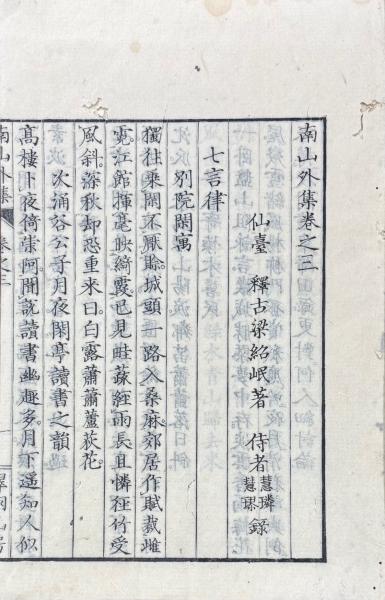 南山外集卷之三
仙臺 釋古梁紹岷著 侍者慧璘慧琢錄
七言律
別院閑寓
獨往乘閑不厭賒城頭一路入桑麻郊居作賦裁雌
霓江館揮毫映綺霞已見畦蔬經雨長且憐徑竹受
風斜落秋却恐重來日白露蕭蕭蘆荻花
次涌谷公子月夜閑亭讀書之韻
高樓卜夜倚崇阿聞説讀書幽趣多月下遥知人似
南山外集 卷之三